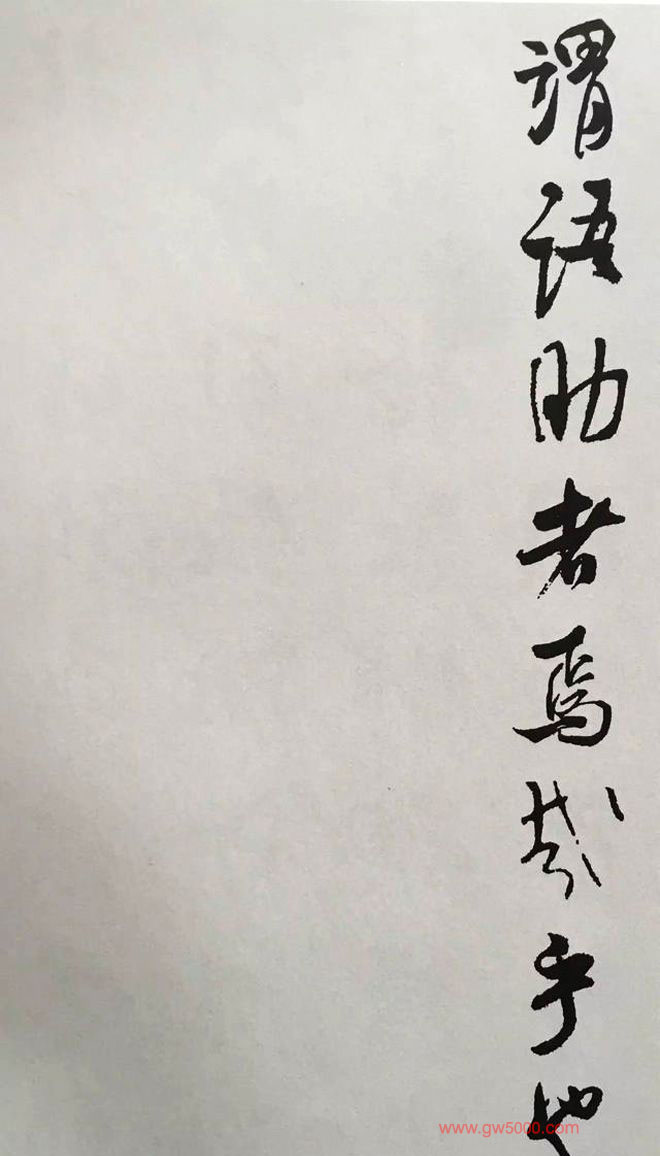 謂語助者焉哉乎也
www.gw5000.com